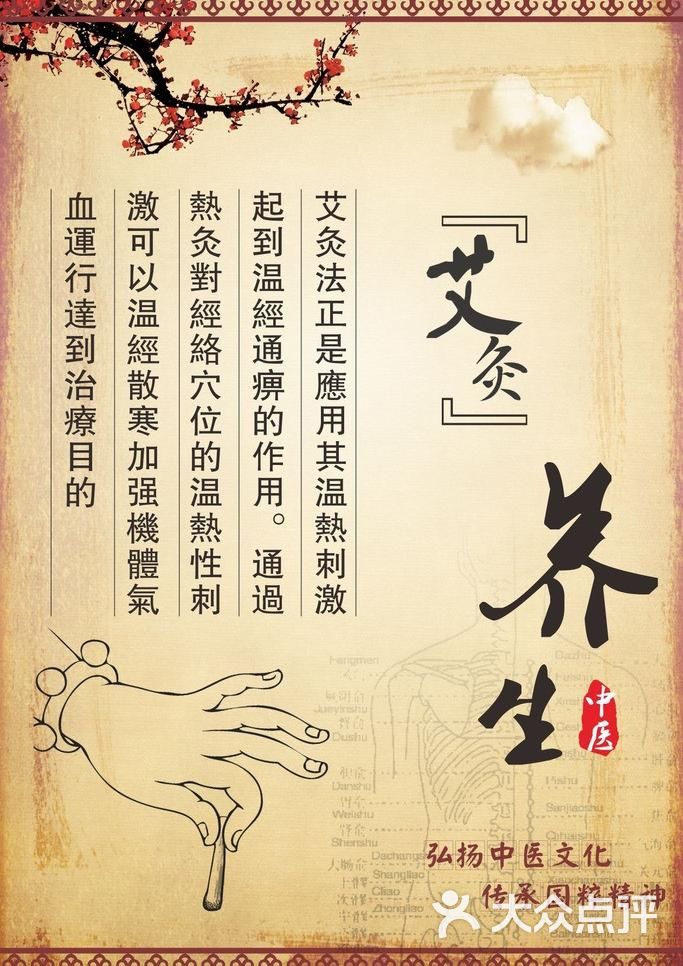 『艾灸』
养生
中医
艾灸法正是應用其温熱刺激
起到温經通痹的作用。通過
熱灸對經絡穴位的温熱性刺
激可以温經散寒加强機體氣
血運行達到治療目的
Fengmen
Jueyinshu
Dushu
Danshu
Weishu
Shenshu
Dachangshu
Shangliao
Ciliao
Zhongliao
Dazhu
Feishu
Pishu
Sanjiaoshu
Qihaishu
Xiaochangshu
弘扬中医文化
传承国粹精神
大众点评